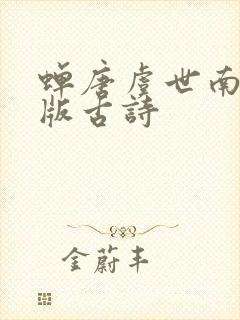 蝉唐虞世南
版古詩
金蔚丰